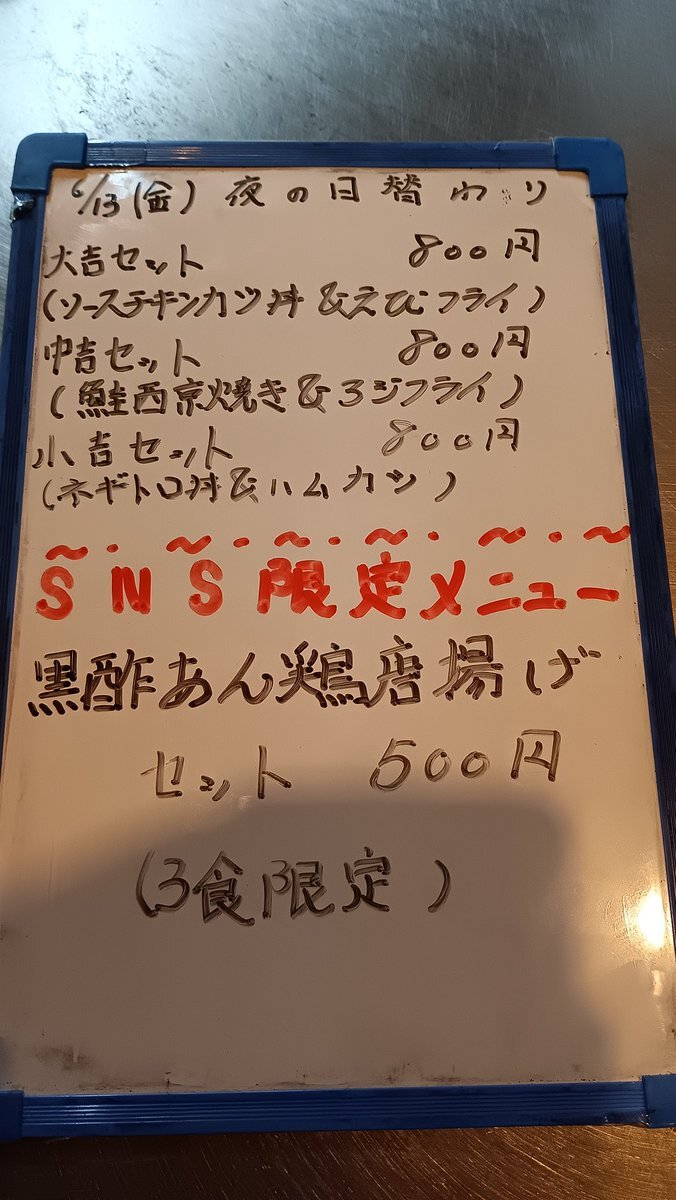 6/13(金) 夜の日替わり
大吉セット 800円
(ソースチキンカツ丼&えびフライ)
中吉セット 800円
(鮭西京焼き&3ジフライ)
小吉セット 800円
(ネギトロ丼&ハムカツ)
~・~・~・~・~・~
SNS限定メニュー
黒酢あん鶏唐揚げ
セット 500円
(3食限定)